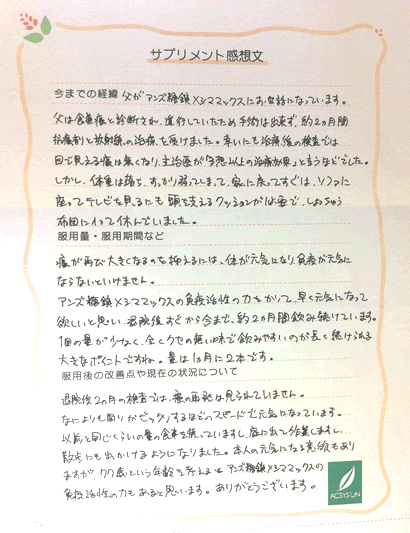 サプリメント感想文
今までの経緯 父がアンズ糖鎖×シママックスにお世話になっています。
父は食道癌と診断され、進行していたため手術は出来ず、約2ヵ月間
抗癌剤と放射線の治療を受けました。幸いにも治療後の検査では
目で見える癌は無くなり、主治医が「予想以上の治療効果」と言うほどでした。
しかし、体重は落ち、すっかり弱ってしまって、家に戻ってすぐは、ソファに
座ってテレビを見るにも頭を支えるクッションが必要で、しょっちゅう
布団に入って休んでいました。
服用量・服用期間など
癌が再び大きくなるのを抑えるには、体が元気になり免疫が元気に
ならないといけません。
アンズ糖鎖×シママックスの免疫活性の力をかりて、早く元気になって
欲しいと思い、退院後すぐから今まで、約2ヵ月間飲み続けています。
1回の量が少なく、全くクセの無い味で飲みやすいのが長く続けられる
大きなポイントですね。量は1ヵ月に2本です。
服用後の改善点や現在の状況について
退院後2ヵ月の検査では、癌の再発は見られていません。
なによりも周りがビックリするほどのスピードで元気になっています。
以前と同じくらいの量の食事を摂っていますし、庭に出て作業しますし、
散歩にも出かけるようになりました。本人の元気になる意欲もあり
ますが、77歳という年齢を考えるとアンズ糖鎖×シママックスの
免疫活性の力もあると思います。ありがとうございます。
ACSYS UN